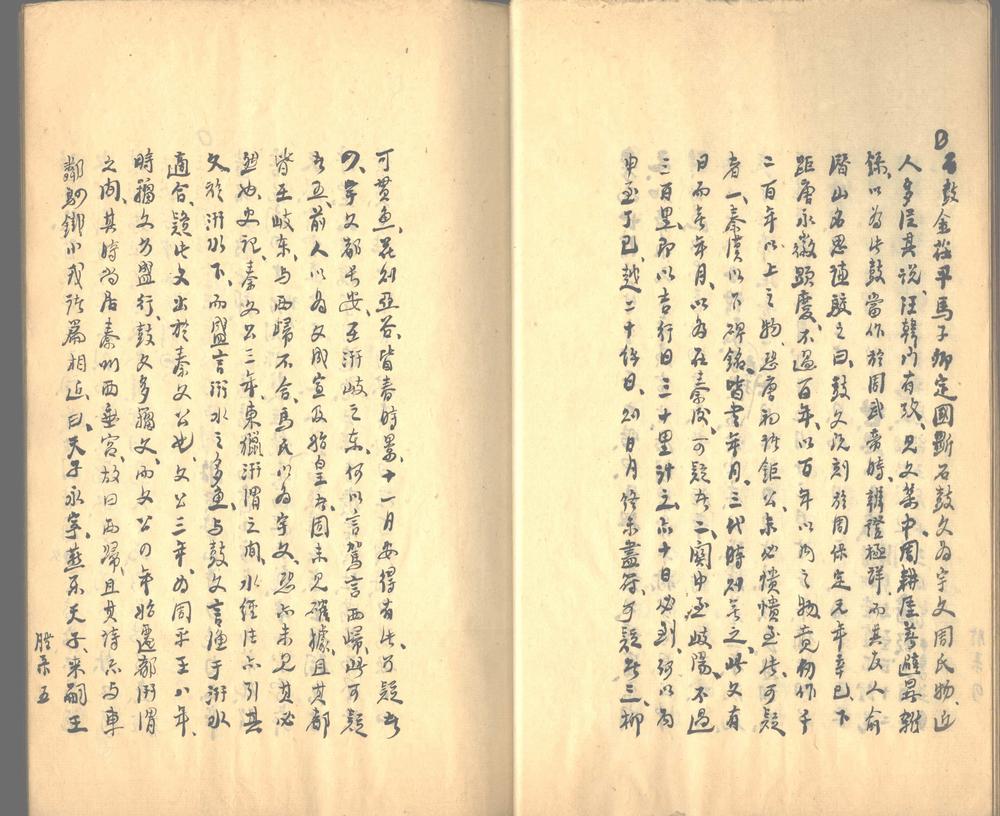 石鼓金莊平馬子卿定國斷石鼓文為宇文周氏物、近
人多從其說、汪韓門有攷、見文集中、周耕厓著避暑
錄、以為此鼓當作於周武帝時、辨證極詳、而其友人俞
潛山名思謙駁之曰、鼓文既刻於周保定元年辛巳、下
距唐永徽顯慶、不過百年、以百年以內之物、竟初作于
二百年以上之物、恐唐初諸鉅公、未必憒憒至此、可疑
者一、秦漢以下碑銘、皆書年月、三代時則無之、此文有
日而無年月、以為在秦後、可疑者二、關中至岐陽、不過
三百里、即以吉行日三十里計之、亦十日必到、何以丙
申至丁巳、越二十餘日、則日月終未盡符、可疑者三、柳
可貫魚、花創亞谷、皆春時景、十一月安得有此、可疑者
四、宇文都長安、在汧岐之東、何以言駕言西歸、此可疑
者五、前人以為文成宣及始皇者、固未見確據、且其都
皆在岐東、與西歸不合、馬氏以為宇文、恐亦未見其必
然也、史記、秦文公三年、東獵汧渭之間、水經注亦引其
文於汧水下、而盛言汧水之多魚、與鼓文言漁于汧水
適合、疑此文出於秦文公也、文公三年、為周平王八年、
時籀文方盛行、鼓文多籀文、而文公四年始遷都汧渭
之間、其時尚居秦州西垂宮、故曰西歸、且其詩亦與車
鄰駟鐵小戎諸篇相近、曰天子永寧、燕樂天子、來嗣王